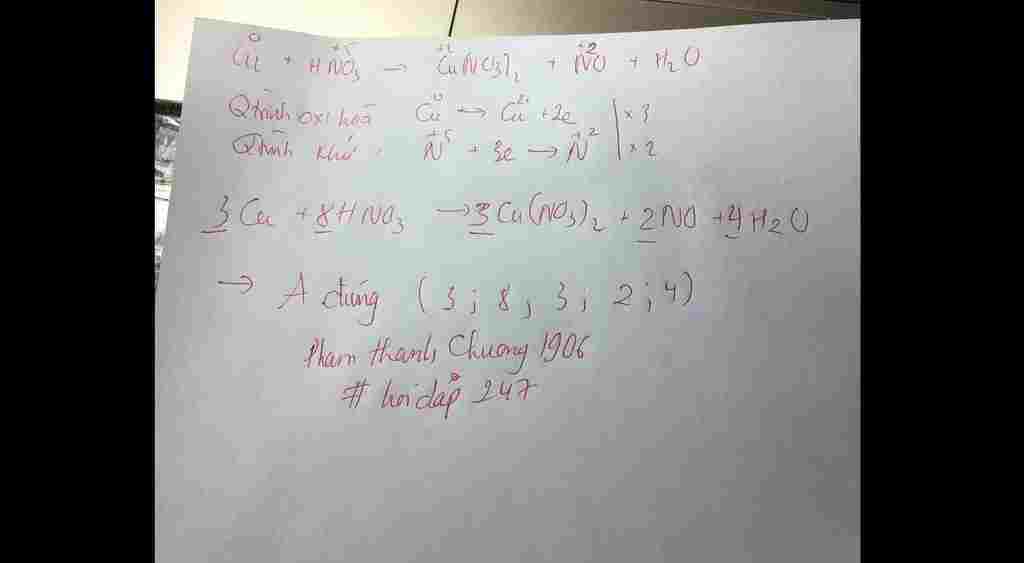 0 +5 +2 +2
Cu + HNO3 → Cu(NO3)2 + NO + H2O
Qtrình oxi hoá Cu⁰ → Cu²⁺ +2e | ×3
Qtrình khử : N⁺⁵ + 3e → N⁺² | ×2
3Cu + 8HNO3 → 3Cu(NO3)2 + 2NO + 4H2O
→ A đúng (3 ; 8 ; 3 ; 2 ; 4)
Pham thanh Chuong 1906
# hoidap 247